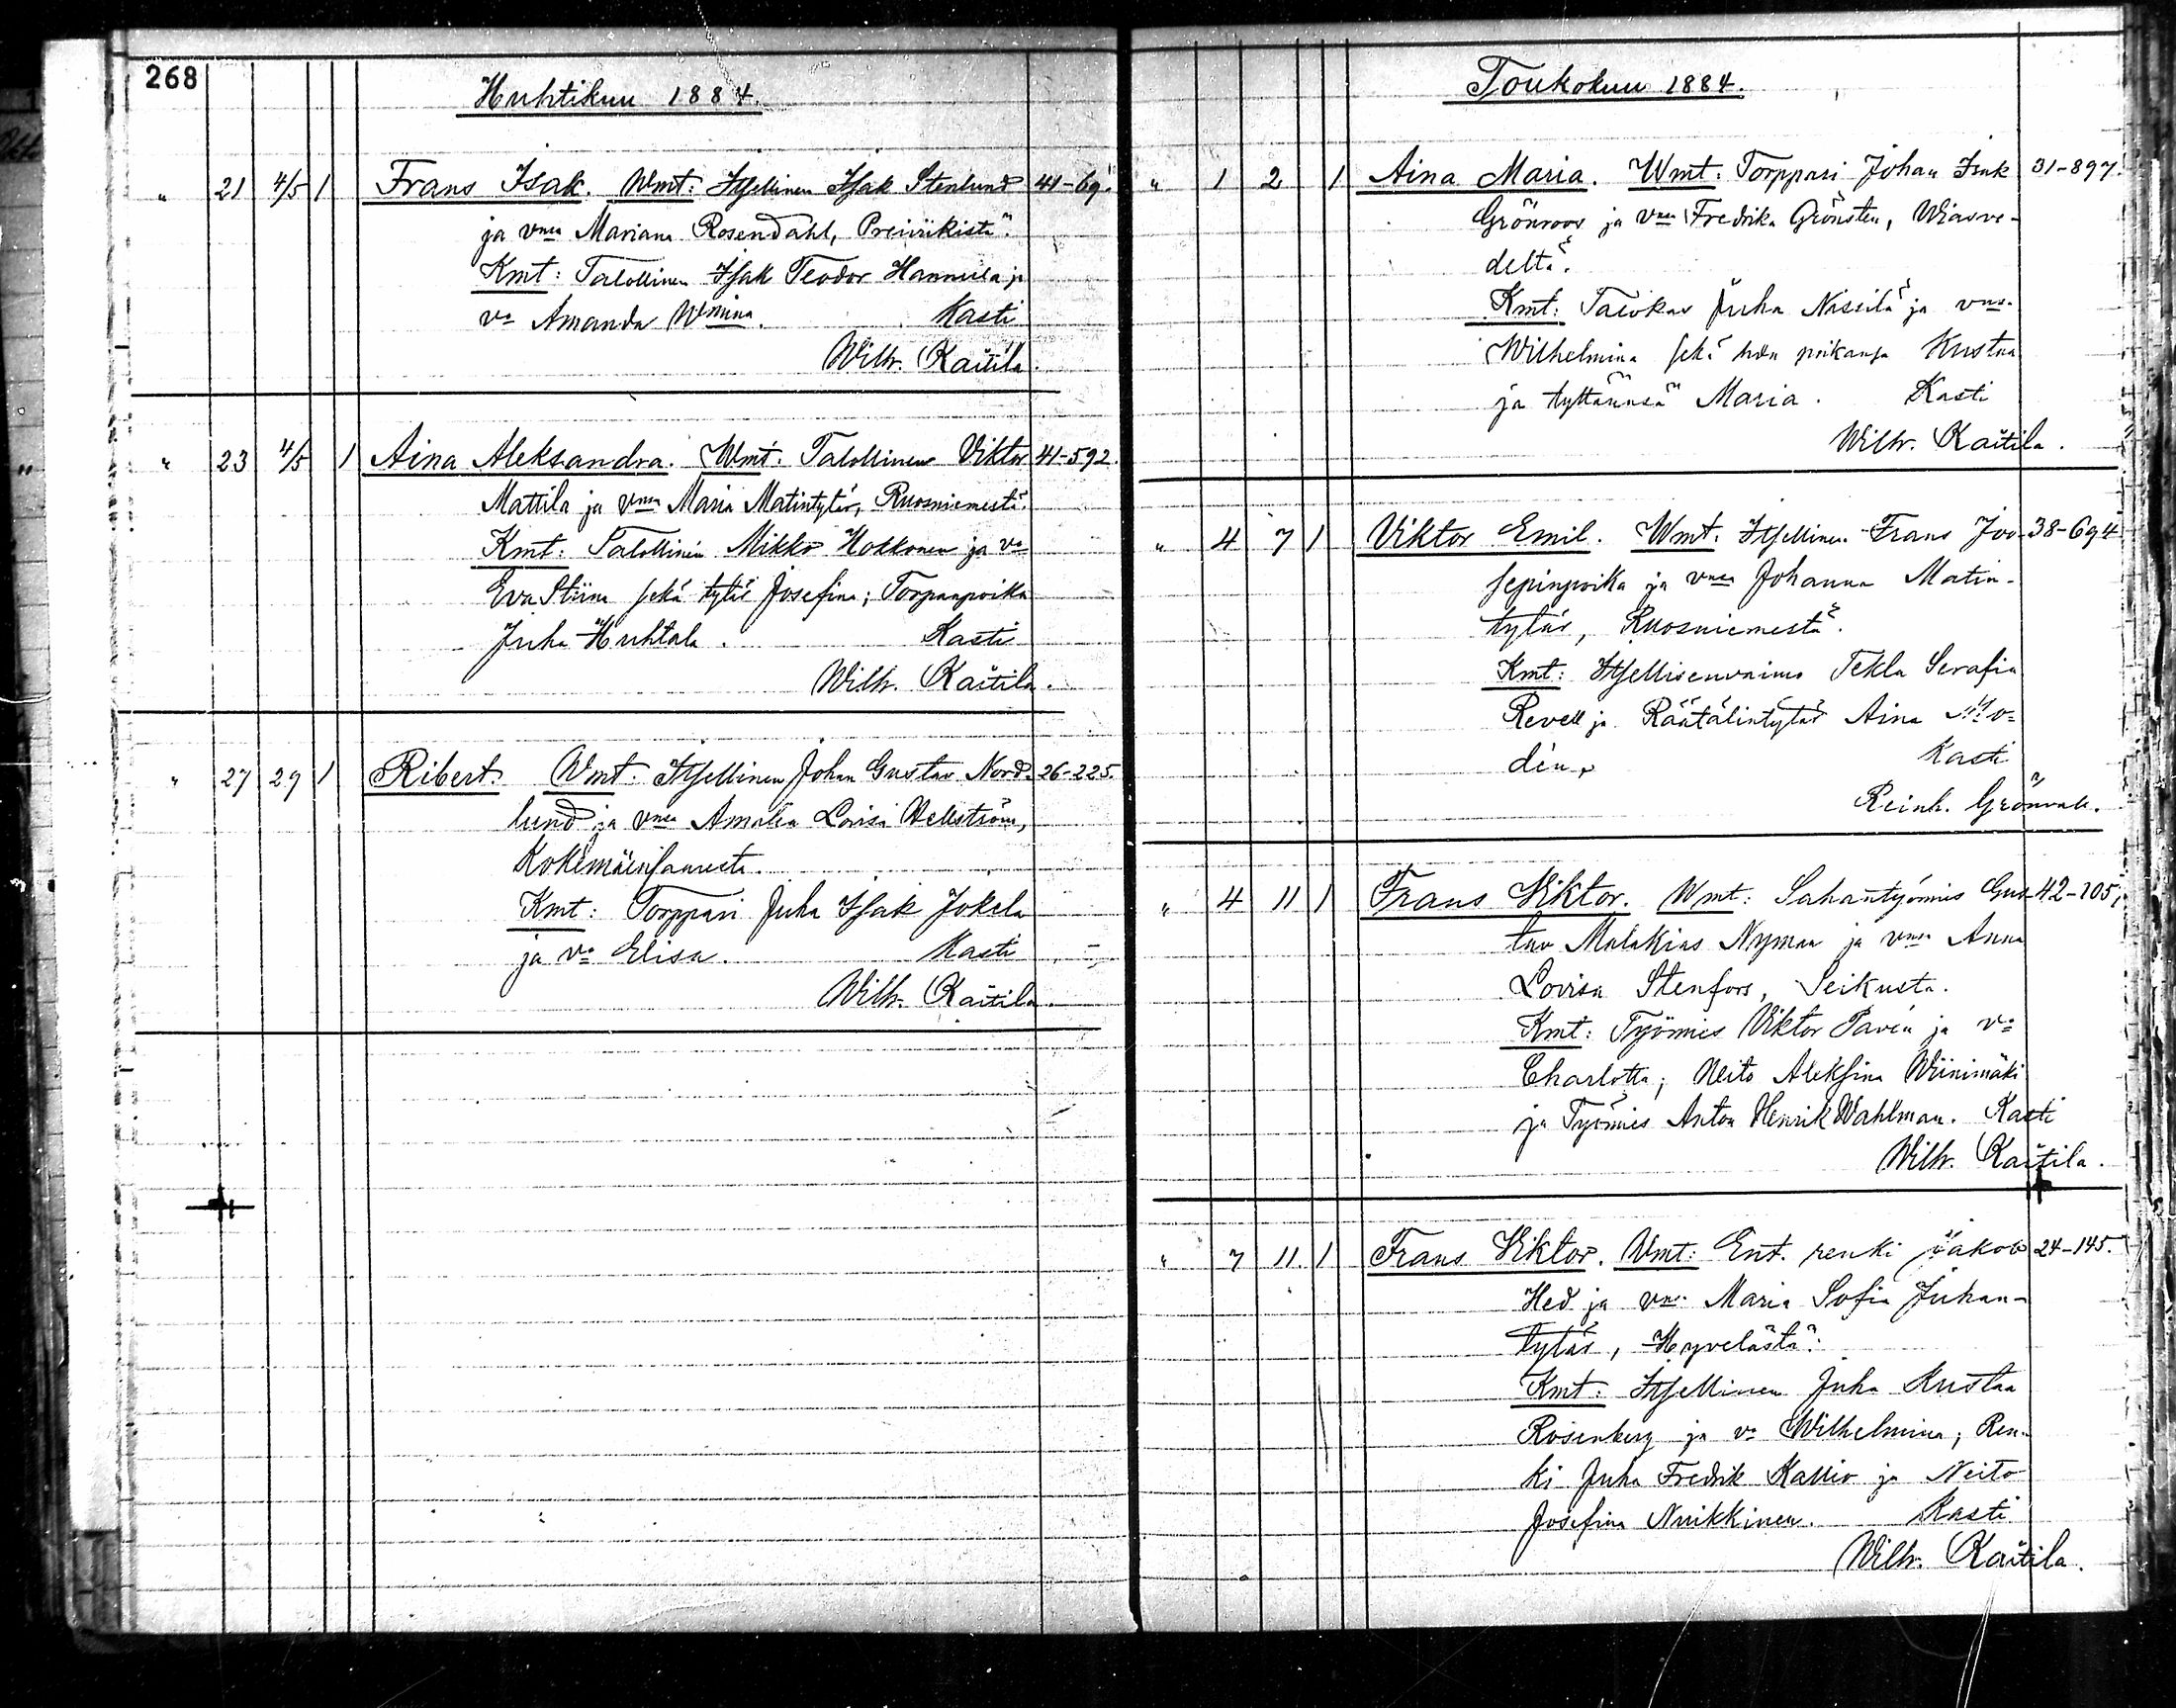 268
Huhtikuu 1884.
" 21 4/5 1 Frans Isak. Wmt: Itsellinen Isak Stenlund 41-69.
ja vmsa Mariana Rosendahl, Preiviikistä.
Kmt: Talollinen Isak Teodor Hannula ja
vo Amanda Wmina. Kasti
Wilh. Kaitila.
" 23 4/5 1 Aina Aleksandra. Wmt: Talollinen Viktor 41-592.
Mattila ja vmsa Maria Matintytär, Ruosniemestä.
Kmt: Talollinen Mikko Hokkonen ja vo
Eva Stiina sekä tytär Josefina; Torpanpoika
Juha Huhtala. Kasti
Wilh. Kaitila.
" 27 29 1 Ribert. Wmt: Itsellinen Johan Gustav Nord- 26-225.
lund ja vmsa Amalia Lovisa Wellström,
Kokemäensaaresta.
Kmt: Torppari Juha Isak Jokela
ja vo Elisa. Kasti
Wilh. Kaitila.
Toukokuu 1884.
" 1 2 1 Aina Maria. Wmt: Torppari Johan Isak 31-897.
Grönroos ja vmsa Fredrika Grönsten, Wiasve-
deltä.
Kmt: Talokas Juha Nissilä ja vmsa
Wilhelmina sekä hdn poikansa Kustaa
ja tyttärensä Maria. Kasti
Wilh. Kaitila.
" 4 7 1 Viktor Emil. Wmt: Itsellinen Frans Joo- 38-694
sepinpoika ja vmsa Johanna Matin-
tytär, Ruosniemestä.
Kmt: Itsellisenvaimo Tekla Serafia
Revell ja Räätälintytär Aina
din. Kasti
Reinh. Grönvall.
" 4 11 1 Frans Viktor. Wmt: Sahantyömies Gus- 42-105.
tav Malakias Nyman ja vmsa Anna
Lovisa Stenfors, Seikusta.
Kmt: Työmies Viktor Pavén ja vo
Charlotta; Neito Aleksina Wiinimäki
ja Työmies Anton Henrik Wahlman. Kasti
Wilh. Kaitila.
" 7 11. 1 Frans Viktor. Wmt: Ent. renki Jakob 24-145.
Hed ja vmsa Maria Sofia Juhan-
tytär, Hyvelästä.
Kmt: Itsellinen Juha Kustaa
Rosenberg ja vo Wilhelmina; Ren-
ki Juha Fredrik Kallio ja Neito
Josefina Nuikkinen. Kasti
Wilh. Kaitila.